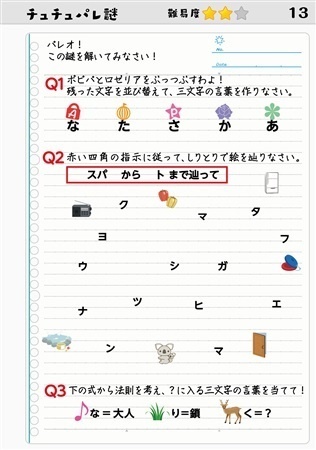 チュチュパレ謎 難易度 13
パレオ！
この謎を解いてみなさい！
No.
Date
Q1 ポピパとロゼリアをぶっつぶすわよ！
残った文字を並び替えて、三文字の言葉を作りなさい。
な た さ か あ
Q2 赤い四角の指示に従って、しりとりで絵を辿りなさい。
スパ から ト まで辿って
ク マ タ
ヨ フ
ウ シ ガ
ナ ツ ヒ エ
ン マ
Q3 下の式から法則を考え、？に入る三文字の言葉を当てて！
な＝大人 り＝鎖 く＝？